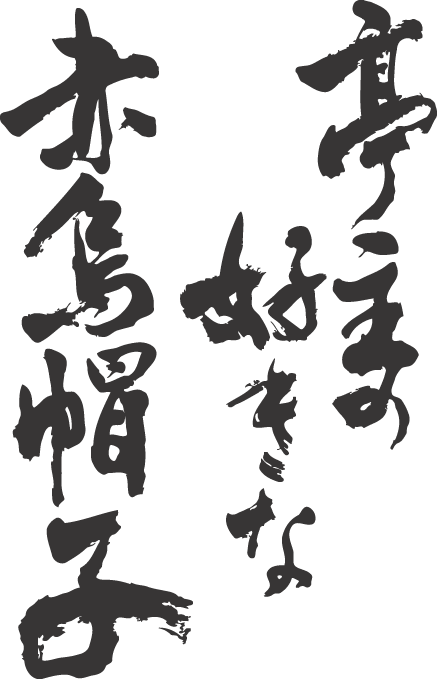 亭主の
好きな
赤烏帽子